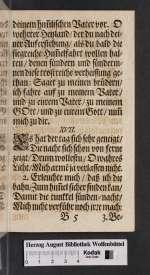 deinem himlischen Vater vor. O
verherter Heyland / der du nach dei-
ner Aufferstehung / als du bald die
siegreiche Himmelfahrt wollen hal-
ten / denen sündern und sünderin-
nen diese trostreiche verheissung ge-
than: Saget zu meinen brüdern /
ich fahre auf zu meinem Vater /
und zu eurem Vater / zu meinem
GOtt / und zu eurem Gott / nim
mich zu dir.
XVII.
Es hat der tag sich sehr geneigt /
Die nacht sich schon von ferne
zeigt / Drum wollestu / O wahres
Licht / Mich armẽ ja verlassen nicht.
2. Erleuchte mich / daß ich die
bahn / Zum himel sicher finden kan /
Damit die tunckel sünden-nacht /
Mich nicht verführt noch irre mach:
B 5 3. Be-
Herzog August Bibliothek Wolfenbüttel